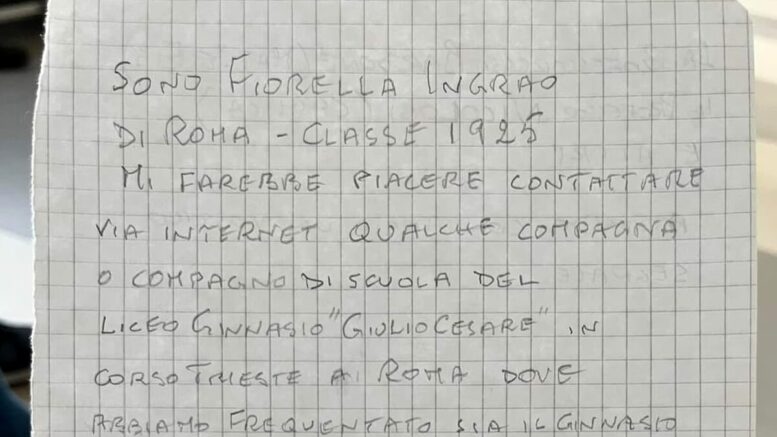 SONO FIORELLA INGRAO
DI ROMA - CLASSE 1925
MI FAREBBE PIACERE CONTATTARE
VIA INTERNET QUALCHE COMPAGNA
O COMPAGNO DI SCUOLA DEL
LICEO GINNASIO "GIULIO CESARE" IN
CORSO TRIESTE A ROMA DOVE
ABBIAMO FREQUENTATO SIA IL GINNASIO